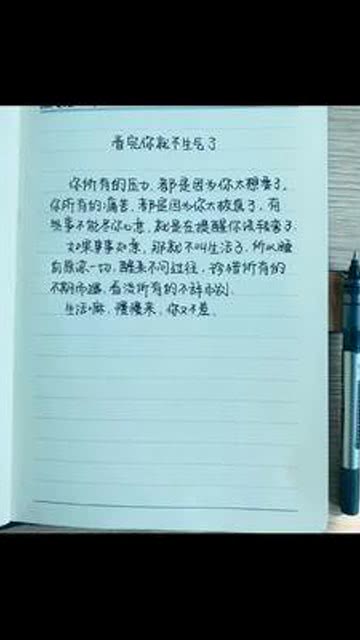 看完你就不生气了
你所有的压力,都是因为你太想要了,
你所有的痛苦,都是因为你太较真了,有
些事不能尽你心意,就是在提醒你该转变了.
如果事事如意,那就不叫生活了,所以睡
前原谅一切,醒来不问过往,珍惜所有的
不期而遇,看淡所有的不辞而别.
生活嘛,慢慢来,你又不差.